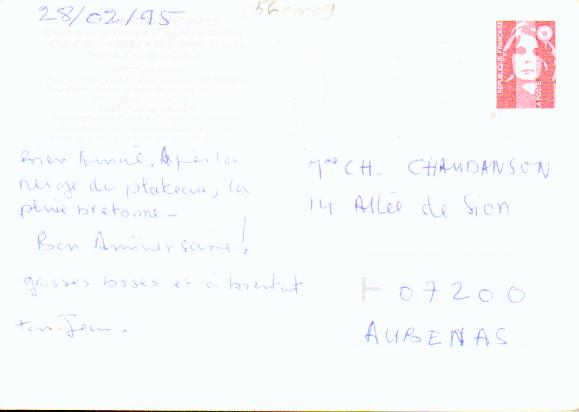 28/02/95
RÉPUBLIQUE FRANÇAISE
LA POSTE
Bien Arrivé. Après la
neige du plateau, la
pluie bretonne -
Bon Anniversaire!
gosses bises et à bientôt
ton Jean.
Mme CH. CHAUDANSON
14 Allée de Sion
07200
AUBENAS